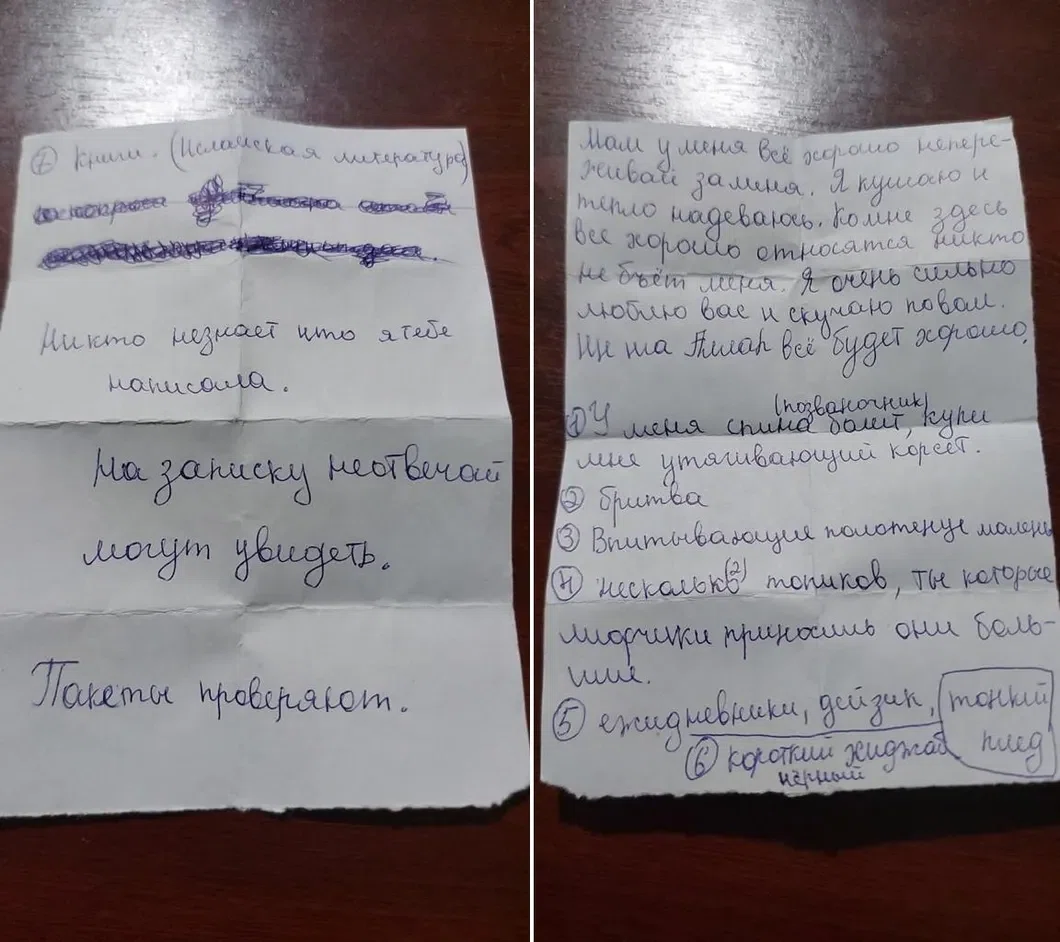 ⑦ книги. (Исламская литература)
Никто незнает что я тебе
написала.
На записку неотвечай
могут увидеть.
Пакеты проверяют.
Мам у меня всё хорошо непере-
живай заменя. Я кушаю и
тепло надеваюсь. Комне здесь
все хорошо относятся никто
не бъёт меня. Я очень сильно
люблю вас и скучаю повам.
Ин ша Аллах всё будет хорошо.
(позваночник)
① У меня спина болит, купи
мне утягивающий корсет.
② бритва
③ Впитывающие полотенце
④ несколько (2) топиков, ты которые
приносишь они боль-
шие.
⑤ ежидневники, тонкий
плед
⑥ короткий хиджаб
чёрный